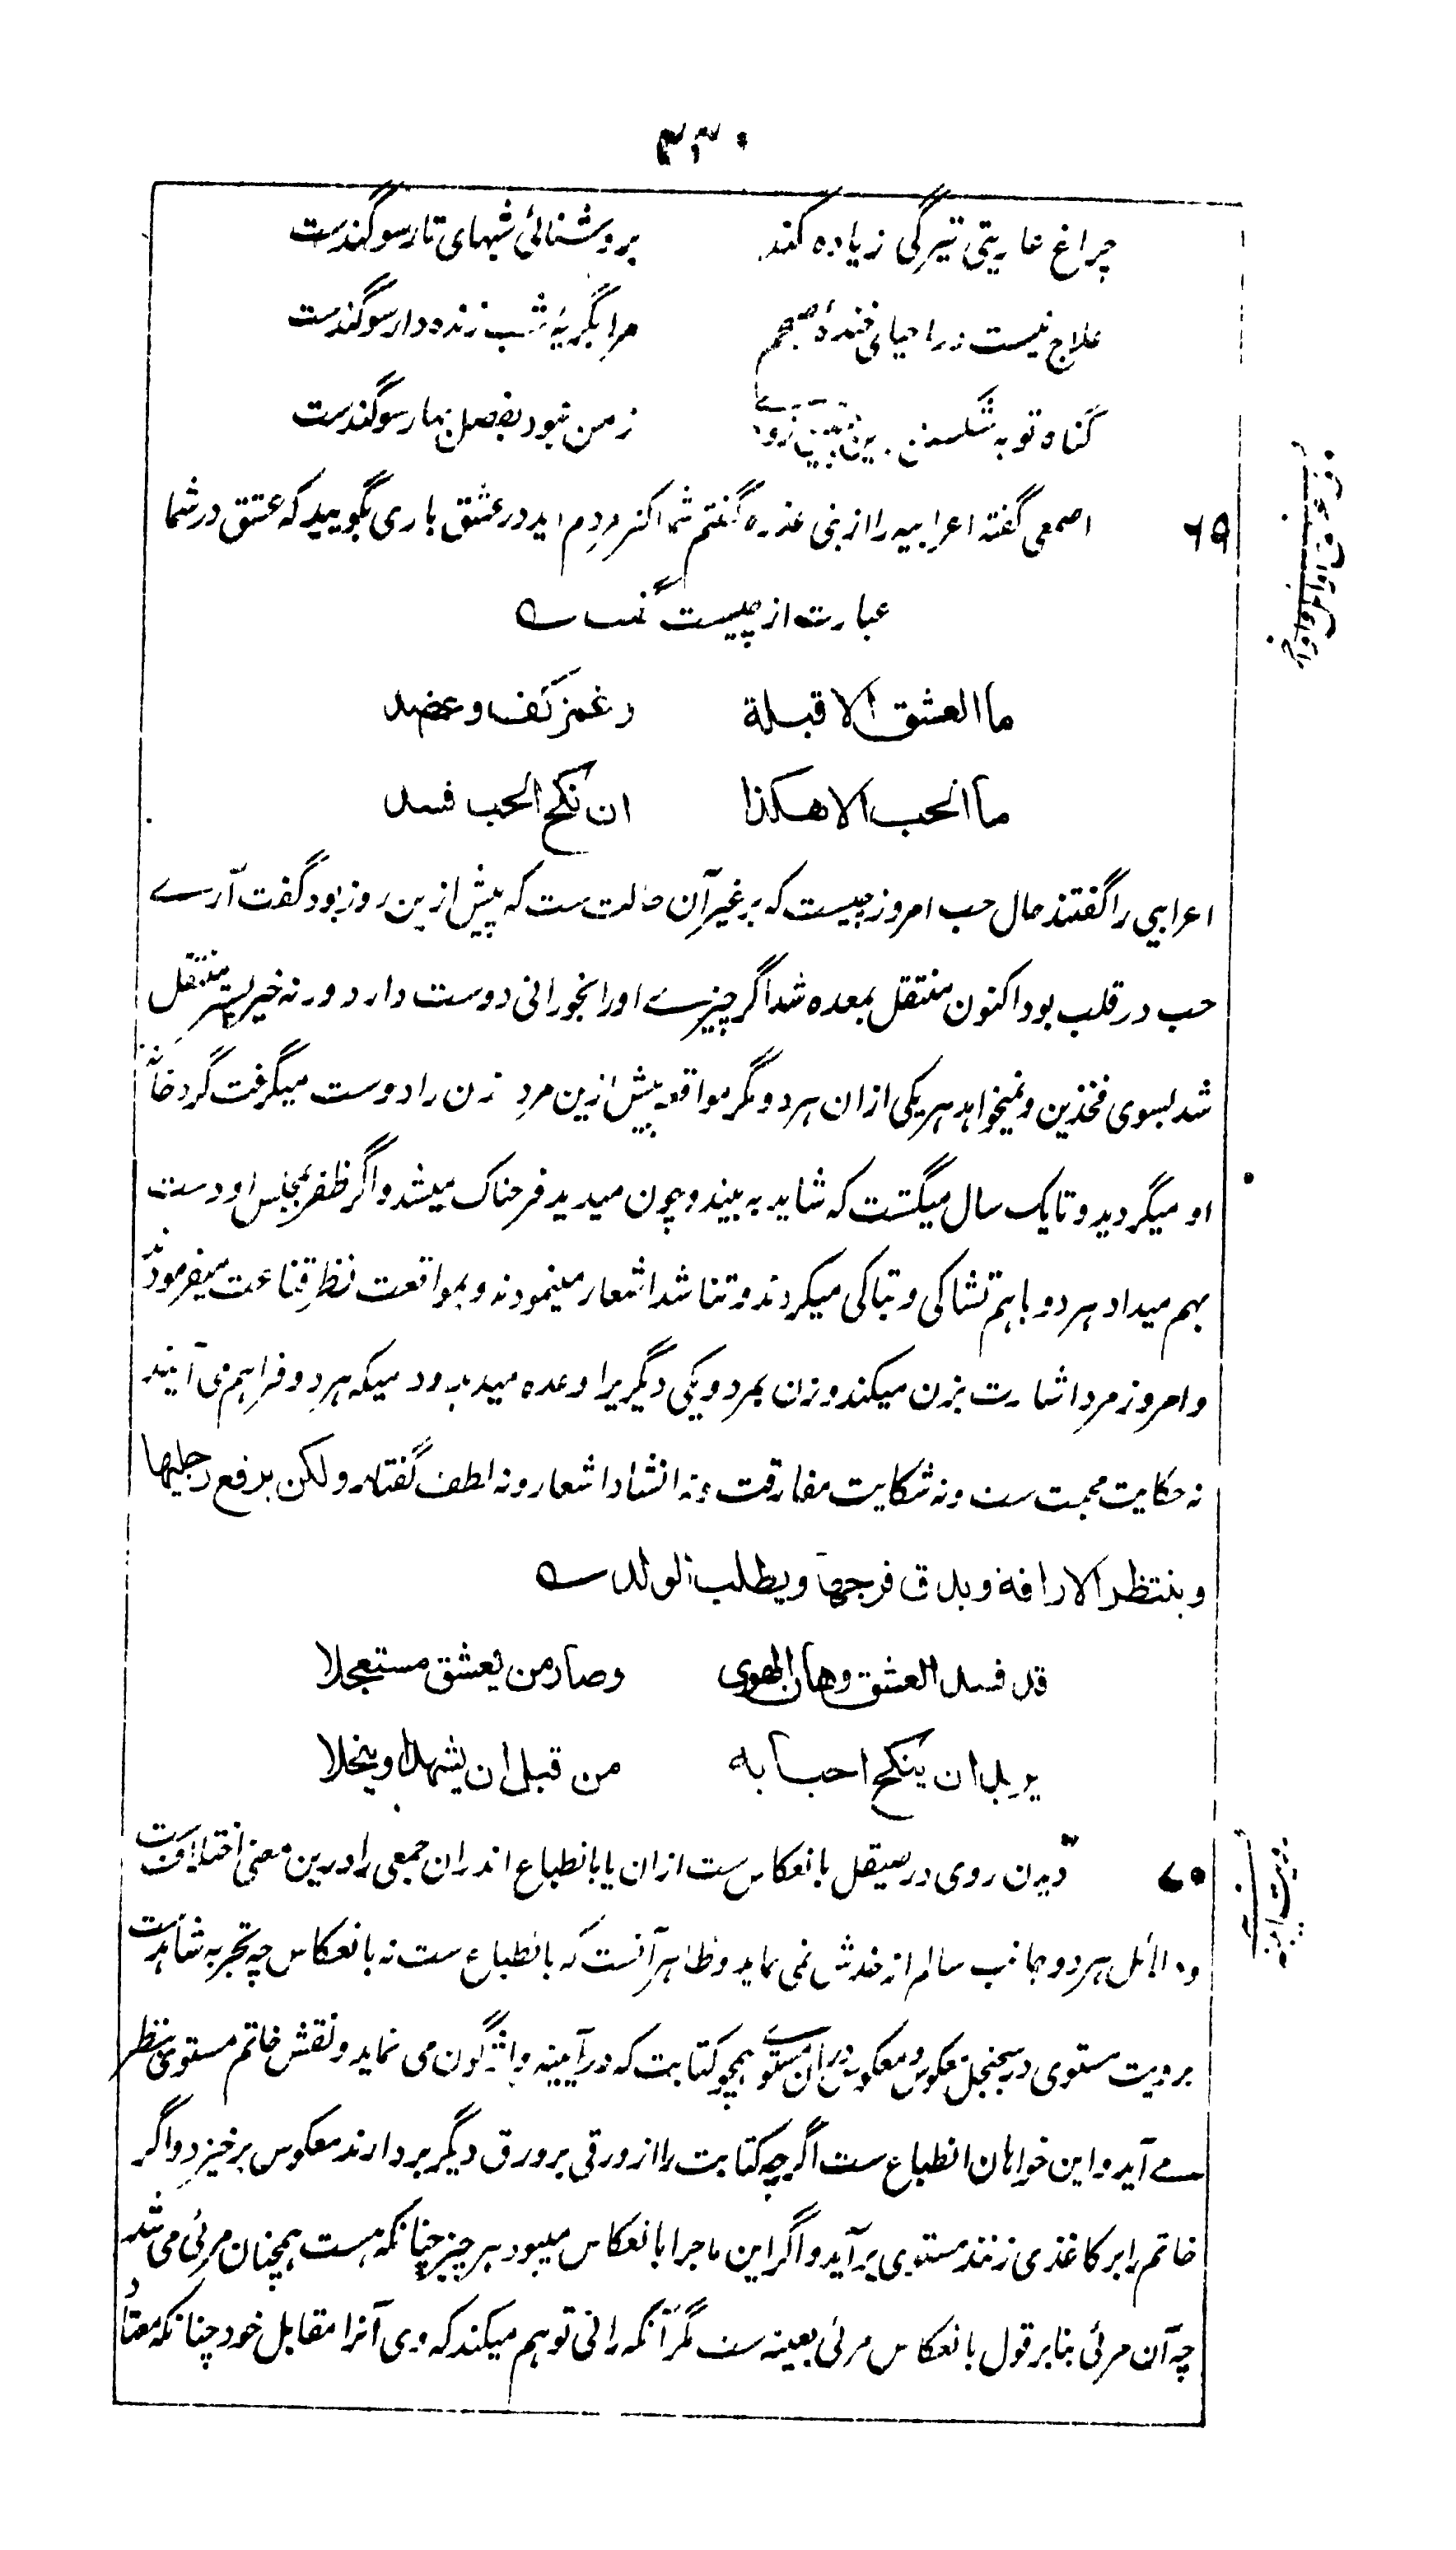 ۳۳۰
چراغ عاریتی تیرگی زیاده کند بروشنائی شبهای تار سوگندست
علاج نیست در احیای خندهٔ صبحم مرا بگریهٔ شب زنده دار سوگندست
گناه توبه شکستن زمن نبود بفصل بهار سوگندست
۶۹ اصمعی گفته اعرابیه را از بنی عذره گفتم شما اکثر مردم اید در عشق باری بگویید که عشق در شما
عبارت از چیست گفت
ما العشق الا قبلة و غمز کف و عضد
ما الحب الا هکذا ان نکح الحب فسد
اعرابیی را گفتند حال حب امروز چیست که بر غیر آن حالت ست که پیش ازین روز بود گفت آرے
حب در قلب بود اکنون منتقل بمعده شد اگر چیزے او را بخورانی دوست دارد ورنه خیر پستر منتقل
شد بسوی فخذین و نمیخواهد هر یکی ازان هر دو مگر مواقعه پیش ازین مرد زن را دوست میگرفت گرد خانهٔ
او میگردید و تا یک سال میگشت که شاید به بیند و چون میدید فرحناک میشد و اگر ظفر بمجلس او دست
بهم میداد هر دو باهم تشاکی و تباکی میکردند و تناشد اشعار مینمودند و بمواقعت نظر قناعت میفرمودند
و امروز مرد اشارت بزن میکند و زن بمرد و یکی دیگریرا وعده میدهد و دمیکه هر دو فراهم می آیند
نه حکایت محبت ست و نه شکایت مفارقت و نه انشاد اشعار و نه لطف گفتار ولکن یرفع رجلیها
و ینتظر الاراقة و یدق فرجها و یطلب الولد
قد فسد العشق وهان الهوی وصار من یعشق مستعجلا
یرید ان ینکح احبابه من قبل ان یشهد او ینحلا
۷۰ دیدن روی در صیقل بانعکاس ست ازان یا بانطباع اندران جمعی را درین معنی اختلاف ست
و دلائل هر دو جانب سالم از خدش نمی نماید و ظاهر آنست که بانطباع ست نه بانعکاس چه تجربه شاهدست
برویت مستوی در سجنجل معکوس و معکوس دران مستوے همچو کتابت که در آیینه واژگون می نماید و نقش خاتم مستوی بنظر
مے آید و این خواهان انطباع ست اگر چه کتابت را از ورقی بر ورق دیگر بردارند معکوس برخیزد و اگر
خاتم را بر کاغذی زنند مستوی برآید و اگر این ماجرا بانعکاس میبود هر چیز چنانکه هست همچنان مرئی می شد
چه آن مرئی بنابر قول بانعکاس مرئی بعینه ست مگر آنکه رائی توهم میکند که وی آنرا مقابل خود چنانکه معتاد